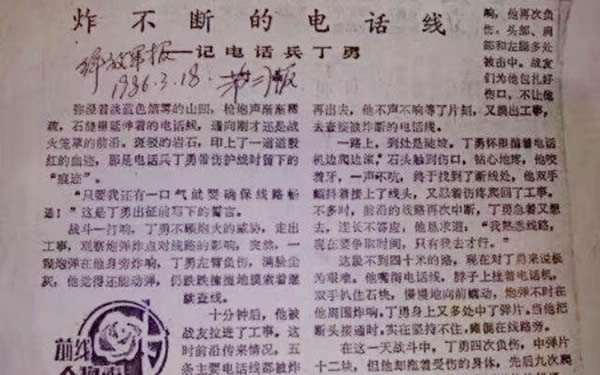 炸不断的电话线
——记电话兵丁勇
解放军报
1986.3.18.
弥漫着淡蓝色烟雾的山凹，枪炮声渐渐稀
疏，石缝里延伸着的电话线，通向刚才还是战
火笼罩的前沿。斑驳的岩石，印上了一道道殷
红的血迹，那是电话兵丁勇带伤护线时留下的
“痕迹”。
“只要我还有一口气就要确保线路畅
通！”这是丁勇出征前写下的誓言。
战斗一打响，丁勇不顾炮火的威胁，走出
工事，观察炮弹炸点对线路的影响，突然，一
颗炮弹在他身旁炸响，丁勇左臂负伤，满脸尘
灰，他觉得还能动弹，仍跌跌撞撞地摸索着继
续查线。
十分钟后，他被
战友拉进了工事。这
时前沿传来情况，五
条主要电话线都被炸
前线
再出去，他不声不响等了片刻，又跳出工事，
去查接被炸断的电话线。
一路上，到处是陡坡。丁勇怀抱着电话
机边爬边滚。石头触到伤口，钻心地疼，他咬
着牙，一声不吭，终于找到了断线处，他双手
颤抖着接上了线头，又忍着伤疼爬回了工事。
不多时，前沿的线路再次中断，丁勇急着又想
去，连长不答应，他恳求道：“我熟悉线路，
现在要争取时间，只有我去才行。”
这最不到四十米的路，现在对丁勇来说极
为艰难。他嘴衔电话线，脖子上挂着电话机，
双手扒住石块，慢慢地向前蠕动，炮弹不时在
他周围炸响，丁勇身上又多处中了弹片。当他把
断头接通时，实在坚持不住，瘫倒在线路旁。
在这一天战斗中，丁勇四次负伤，中弹片
十二块，但他却拖着受伤的身体，先后九次爬
响，他再次负
伤。头部、肩
部和左腿多处
被击中。战友
们为他包扎好
伤口，不让他